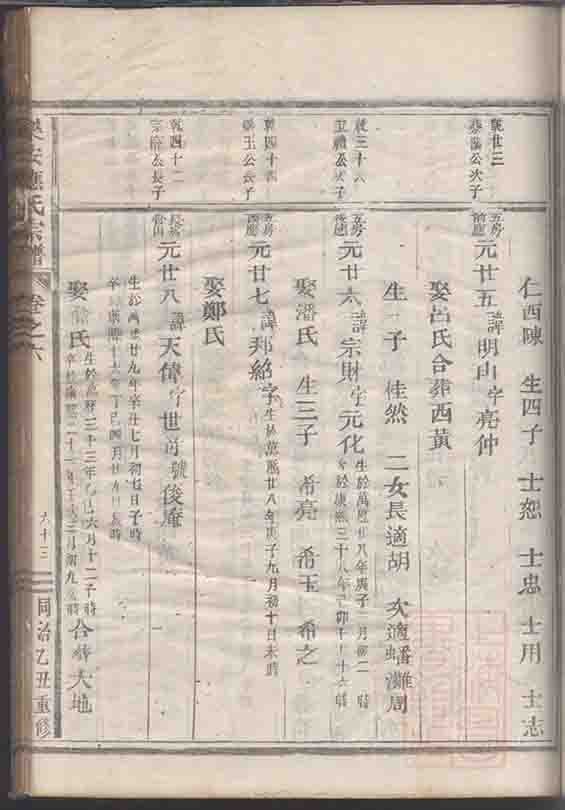 仁西陳 生四子 士恕 士忠 士用 士志
乾廿三
公次子
五房
元廿五諱明山字亮仲
娶呂氏合葬西黃
生一子 桂然 二女長適胡 次適蟠灘周
乾三十六
禮公次子
五房
元廿六諱宗財字元化
生於萬曆廿八年庚子二月初二 時
於康熙三十八年己卯十十六 時
娶潘氏 生三子 希亮 希玉 希之
乾四十四
玉公長子
五房
元廿七諱邦紹字
生於萬曆廿八年庚子九月初十日未時
娶鄭氏
乾四十二
宗 公長子
長房
元廿八諱天偉字世前號俊庵
生於萬曆廿九年辛丑七月初七日子時
卒於康熙十六年丁巳四月廿九日 時
娶 氏
生於萬曆三十三年乙巳六月十二子時
卒於康熙二十一年壬戌三月初九 時
合葬大地
樂安應氏宗譜 卷之六 六十三 同治乙丑重修